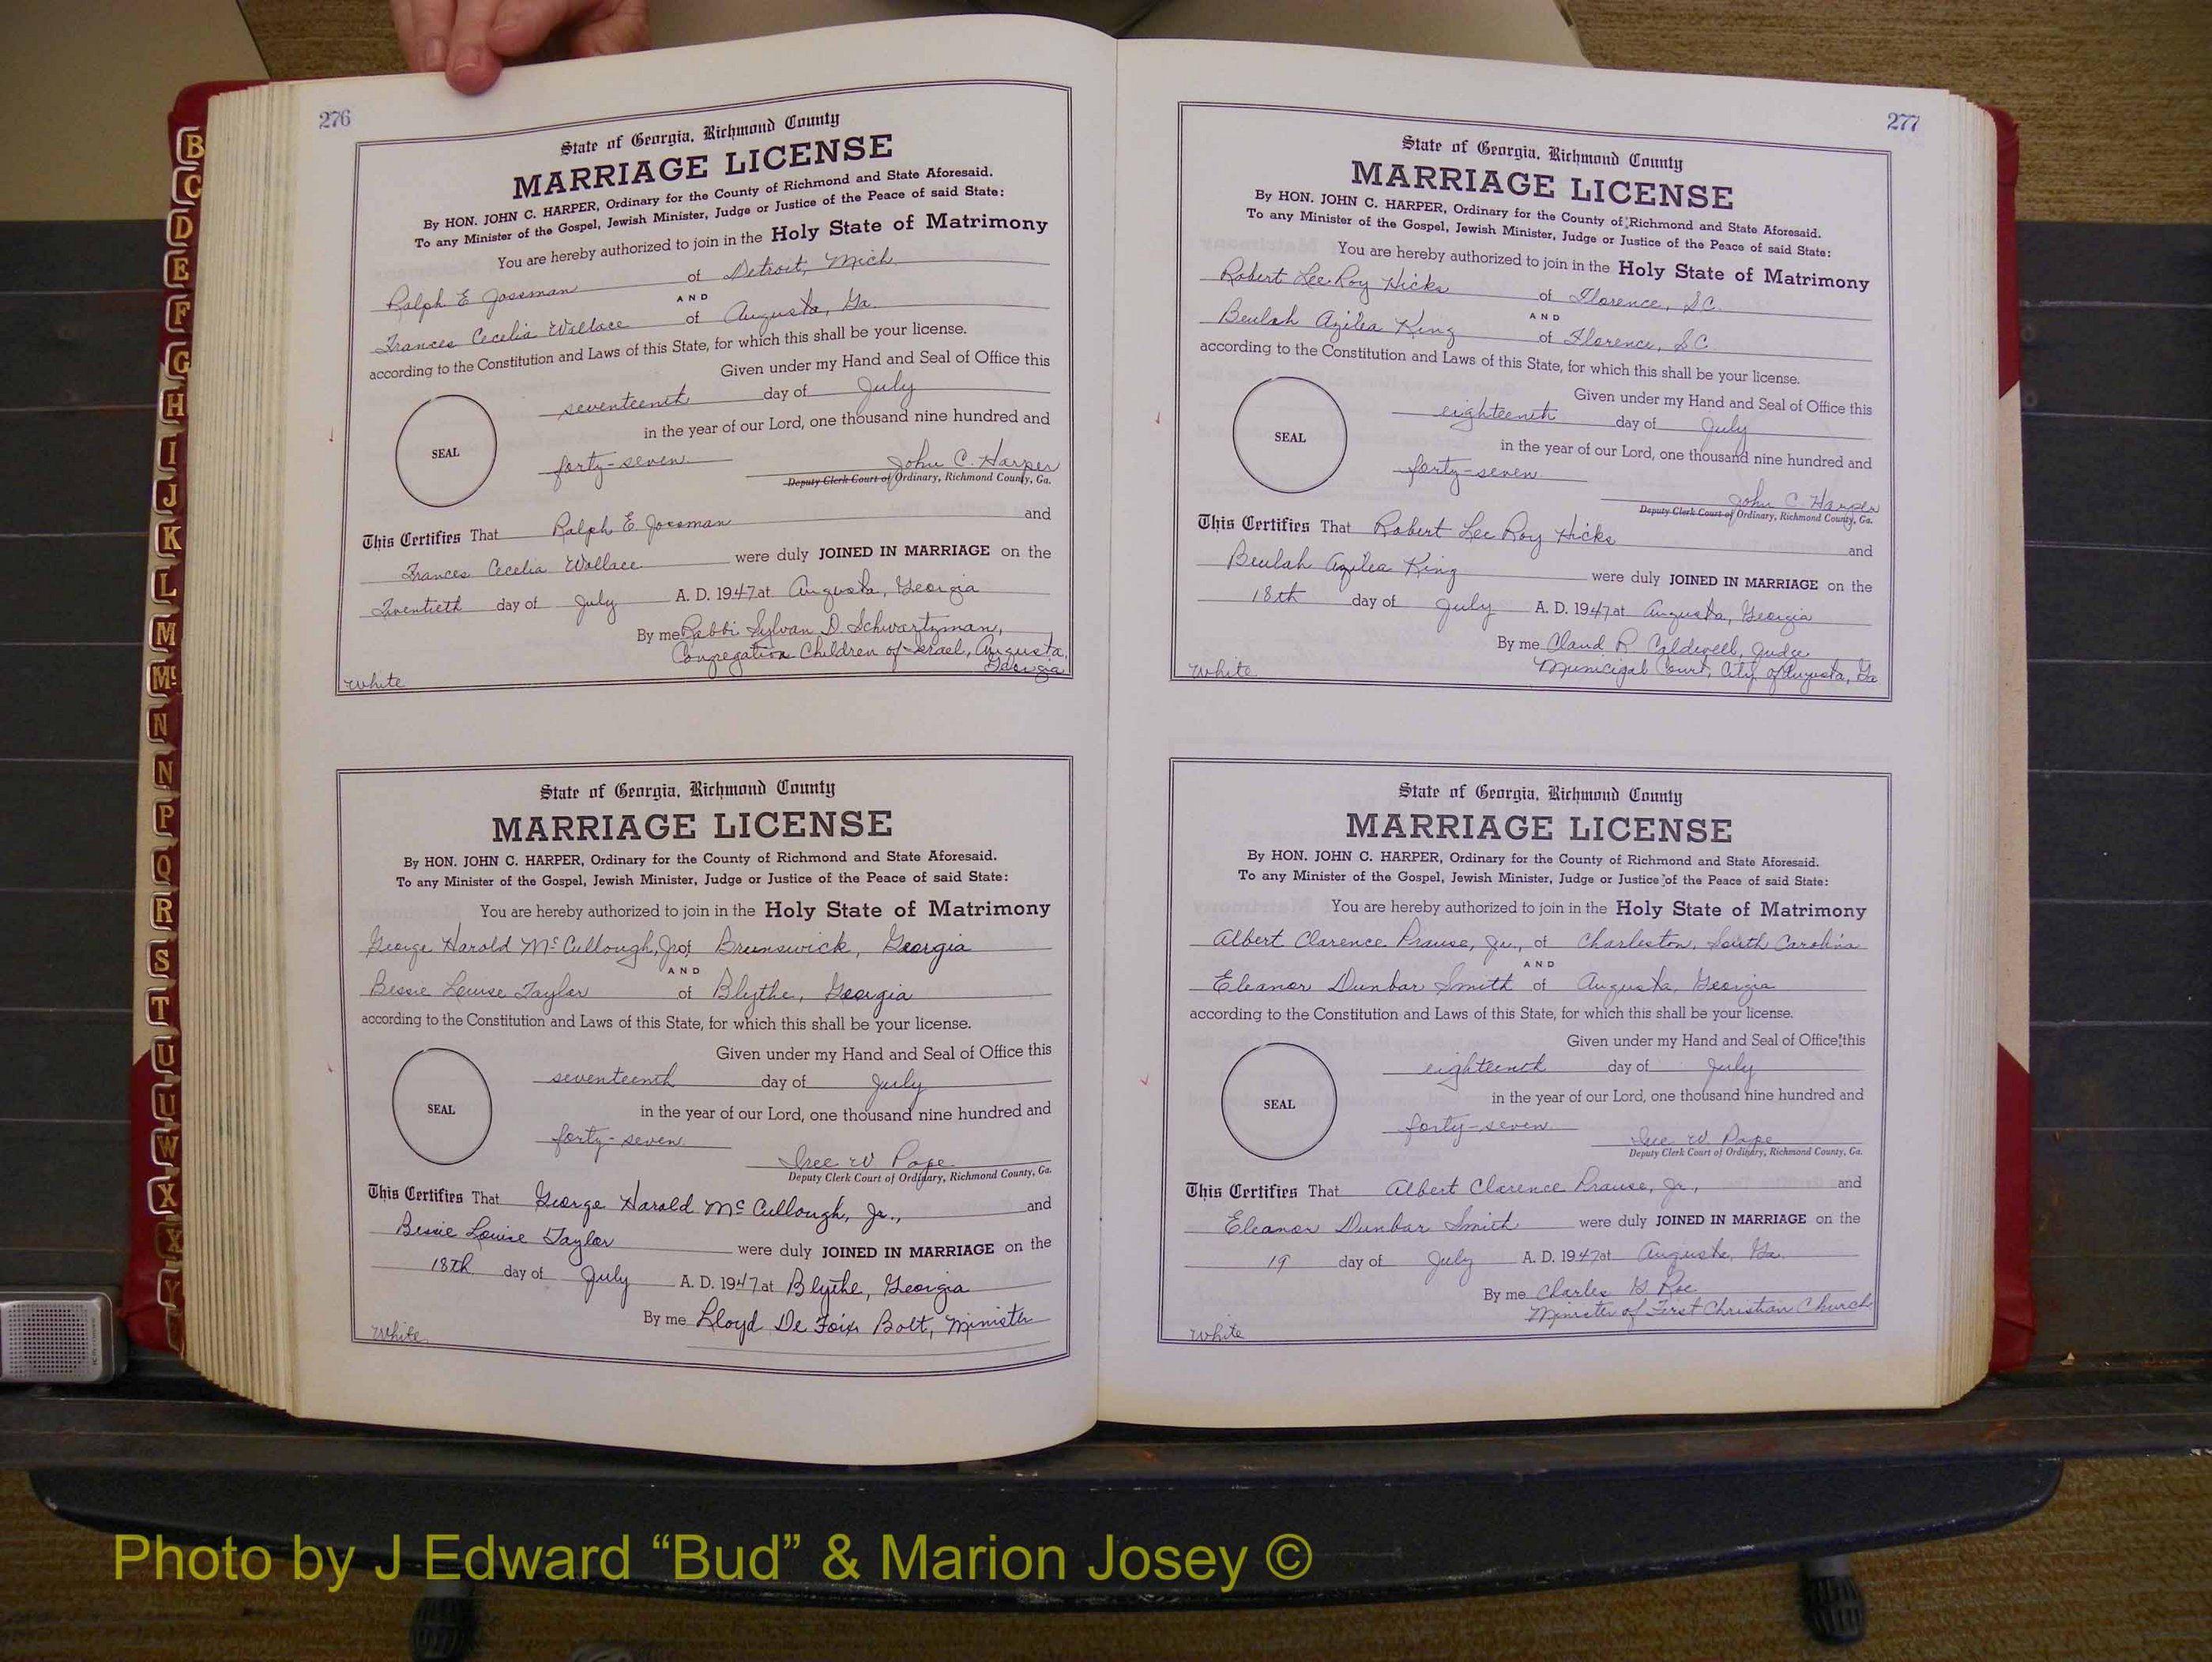 276
State of Georgia, Richmond County
MARRIAGE LICENSE
By HON. JOHN C. HARPER, Ordinary for the County of Richmond and State Aforesaid.
To any Minister of the Gospel, Jewish Minister, Judge or Justice of the Peace of said State:
You are hereby authorized to join in the Holy State of Matrimony
Ralph E Jossman of Detroit, Mich
AND
Frances Cecelia Wallace of Augusta, Ga.
according to the Constitution and Laws of this State, for which this shall be your license.
Given under my Hand and Seal of Office this
seventeenth day of July
in the year of our Lord, one thousand nine hundred and
SEAL
forty-seven
John C. Harper
Deputy Clerk Court of Ordinary, Richmond County, Ga.
This Certifies That Ralph E Jossman and
Frances Cecelia Wallace were duly JOINED IN MARRIAGE on the
Twentieth day of July A. D. 1947 at Augusta, Georgia
By me Rabbi Sylvan D. Schwartzman,
Congregation Children of Israel, Augusta,
Georgia
White
State of Georgia, Richmond County
MARRIAGE LICENSE
By HON. JOHN C. HARPER, Ordinary for the County of Richmond and State Aforesaid.
To any Minister of the Gospel, Jewish Minister, Judge or Justice of the Peace of said State:
You are hereby authorized to join in the Holy State of Matrimony
George Harold McCullough, Jr of Brunswick, Georgia
AND
Bessie Louise Taylor of Blythe, Georgia
according to the Constitution and Laws of this State, for which this shall be your license.
Given under my Hand and Seal of Office this
seventeenth day of July
in the year of our Lord, one thousand nine hundred and
SEAL
forty-seven
W Pope
Deputy Clerk Court of Ordinary, Richmond County, Ga.
This Certifies That George Harold McCullough, Jr., and
Bessie Louise Taylor were duly JOINED IN MARRIAGE on the
18th day of July A. D. 1947 at Blythe, Georgia
By me Lloyd De Foix Bolt, Minister
White
277
State of Georgia, Richmond County
MARRIAGE LICENSE
By HON. JOHN C. HARPER, Ordinary for the County of Richmond and State Aforesaid.
To any Minister of the Gospel, Jewish Minister, Judge or Justice of the Peace of said State:
You are hereby authorized to join in the Holy State of Matrimony
Robert Lee Roy Hicks of Florence, S.C.
AND
Beulah Azilea King of Florence, S.C.
according to the Constitution and Laws of this State, for which this shall be your license.
Given under my Hand and Seal of Office this
eighteenth day of July
in the year of our Lord, one thousand nine hundred and
SEAL
forty-seven
John C. Harper
Deputy Clerk Court of Ordinary, Richmond County, Ga.
This Certifies That Robert Lee Roy Hicks and
Beulah Azilea King were duly JOINED IN MARRIAGE on the
18th day of July A. D. 1947 at Augusta, Georgia
By me Claud R Caldwell, Judge
Municipal Court, City of Augusta, Ga
White
State of Georgia, Richmond County
MARRIAGE LICENSE
By HON. JOHN C. HARPER, Ordinary for the County of Richmond and State Aforesaid.
To any Minister of the Gospel, Jewish Minister, Judge or Justice of the Peace of said State:
You are hereby authorized to join in the Holy State of Matrimony
Albert Clarence Prause, Jr., of Charleston, South Carolina
AND
Eleanor Dunbar Smith of Augusta, Georgia
according to the Constitution and Laws of this State, for which this shall be your license.
Given under my Hand and Seal of Office this
eighteenth day of July
in the year of our Lord, one thousand nine hundred and
SEAL
forty-seven
W Pope
Deputy Clerk Court of Ordinary, Richmond County, Ga.
This Certifies That Albert Clarence Prause, Jr., and
Eleanor Dunbar Smith were duly JOINED IN MARRIAGE on the
19 day of July A. D. 1947 at Augusta, Ga.
By me Charles G Roe
Minister of First Christian Church
White
B
C
D
E
F
G
H
I
J
K
L
M
Mc
N
N
P
Q
R
S
T
U
U
W
X
X
Y
Photo by J Edward “Bud” & Marion Josey ©